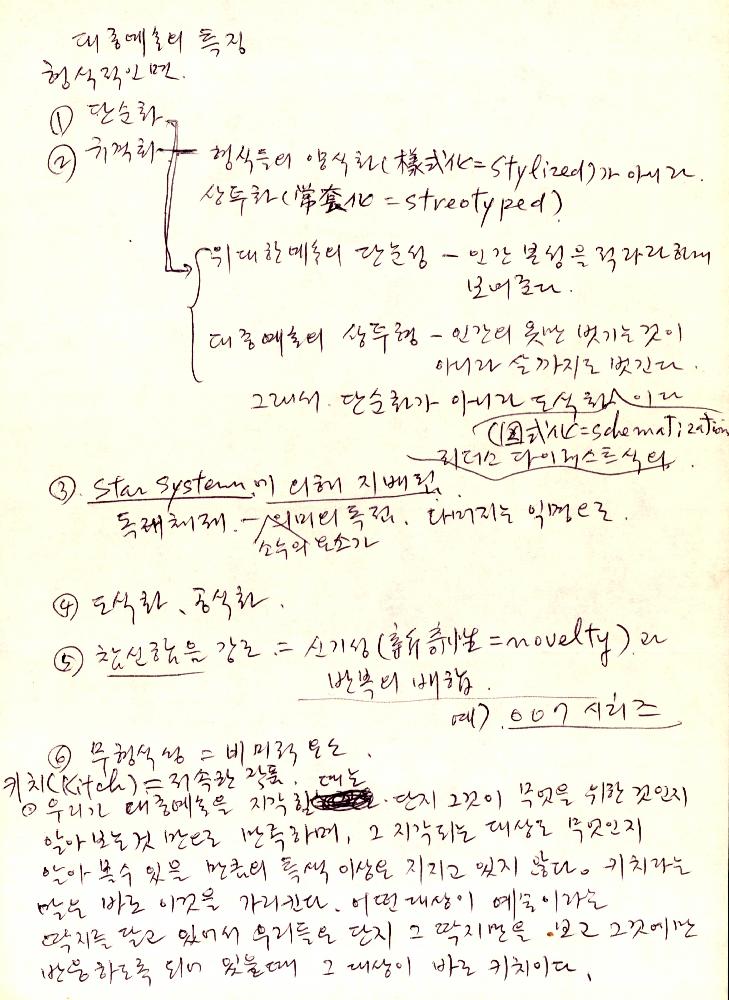 대중예술의 특징
형식적인 면.
① 단순화
② 규격화 — 형식들의 양식화(樣式化=stylized)가 아니라.
상투화(常套化 = streotyped)
위대한 예술의 단순성 - 인간 본성을 적나라하게
보여준다.
대중예술의 상투형 - 인간의 옷만 벗기는 것이
아니라 살까지도 벗긴다.
그래서. 단순화가 아니라 도식화이다
(図式化=schematization
리더스 다이제스트식의.
③. Star System에 의해 지배된.
독재체제. - 의미의 독점. 나머지는 익명으로.
소수의 요소가
④ 도식화、공식화.
⑤ 참신함을 강조 = 신기성(新奇性=novelty)과
반복의 배합.
예) .007 시리즈
⑥ 무형식성 = 비미적 요소.
키치(Kitch) = 저속한 작품. 때는
⊙ 우리가 대중예술을 지각할 . 단지 그것이 무엇을 위한 것인지
알아보는 것 만으로 만족하며, 그 지각되는 대상도 무엇인지
알아 볼 수 있을 만큼의 특색 이상도 지니고 있지 않다. 키치라는
말은 바로 이것을 가리킨다. 어떤 대상이 예술이라는
딱지를 달고 있어서 우리들은 단지 그 딱지만을 보고 그것에만
반응하도록 되어 있을 때 그 대상이 바로 키치이다.